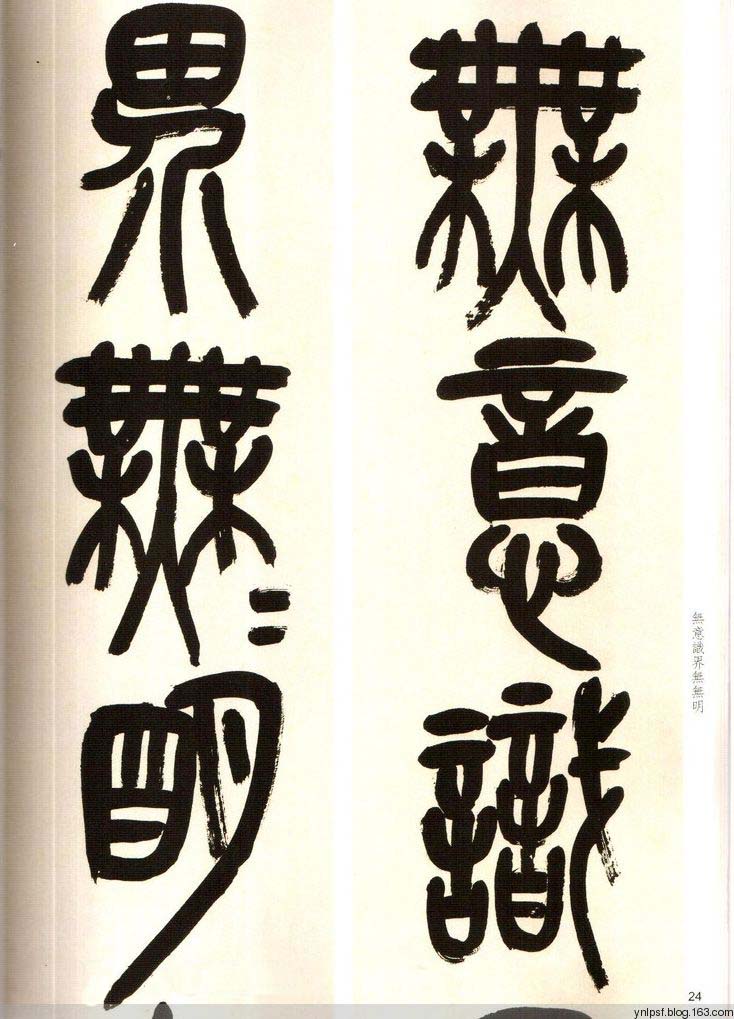 無意識
界無〻明
無意識界無無明
24
ynlpsf.blog.163.com